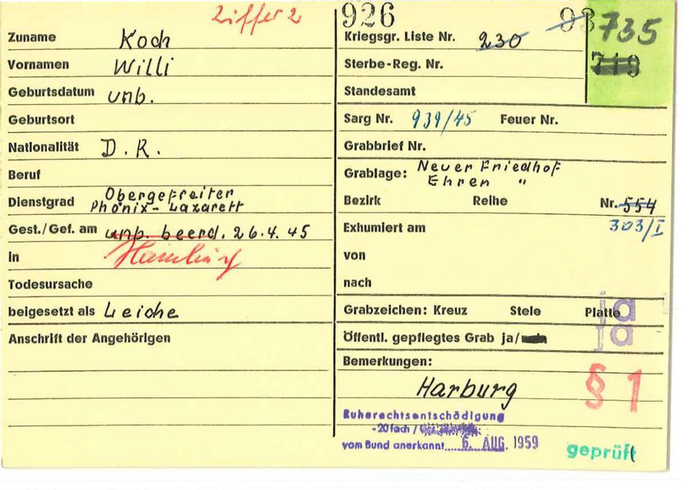 Ziffer 2
926
735
Zuname Koch
Kriegsgr. Liste Nr. 230
Vornamen Willi
Sterbe-Reg. Nr.
Geburtsdatum unb.
Standesamt
Geburtsort
Sarg Nr. 939/45 Feuer Nr.
Nationalität D.R.
Grabbrief Nr.
Beruf
Grablage: Neuer Friedhof
Ehren "
Dienstgrad Obergefreiter
Phönix-Lazarett
Bezirk Reihe Nr. 554
303/I
Gest./Gef. am unb. beerd. 26.4.45
Exhumiert am
in Hamburg
von
Todesursache
nach
beigesetzt als Leiche
Grabzeichen: Kreuz Stele Platte ja
Anschrift der Angehörigen
Öffentl. gepflegtes Grab ja/ ja
Bemerkungen:
Harburg
§ 1
Ruherechtsentschädigung
-20fach /
vom Bund anerkannt 6. AUG. 1959
geprüft